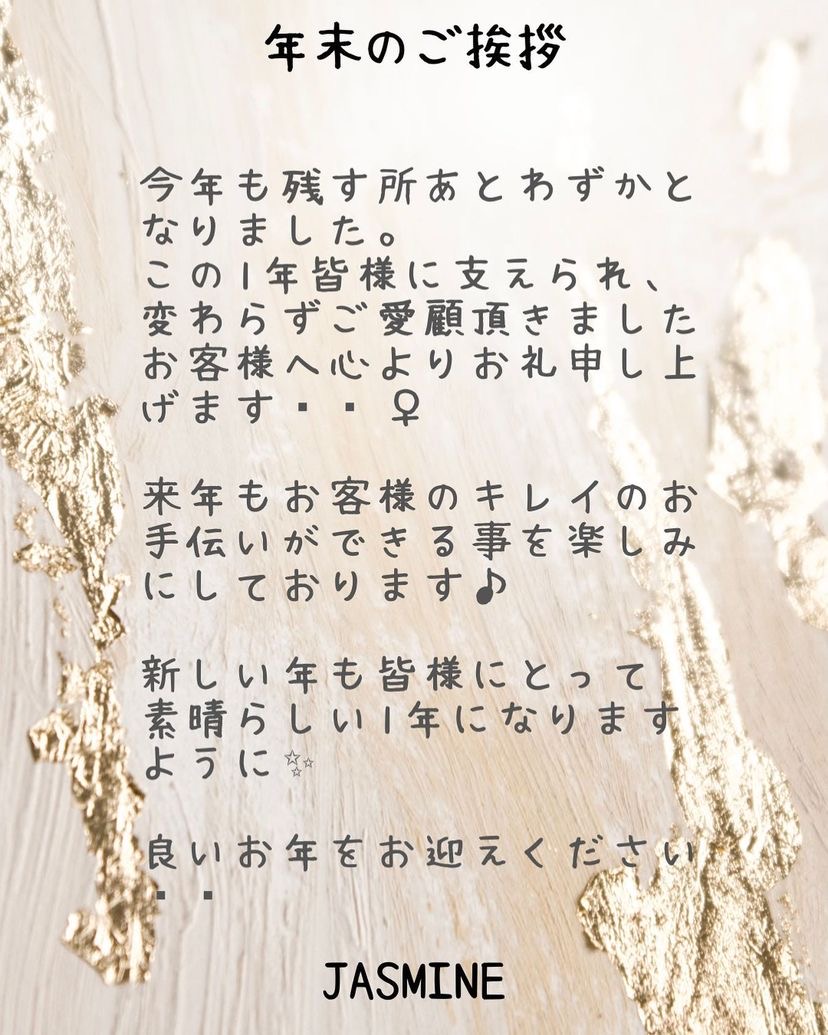 年末のご挨拶
今年も残す所あとわずかと
なりました。
この1年皆様に支えられ、
変わらずご愛顧頂きました
お客様へ心よりお礼申し上
げます▪▪♀
来年もお客様のキレイのお
手伝いができる事を楽しみ
にしております♪
新しい年も皆様にとって
素晴らしい1年になります
ように✨
良いお年をお迎えください
▪▪
JASMINE